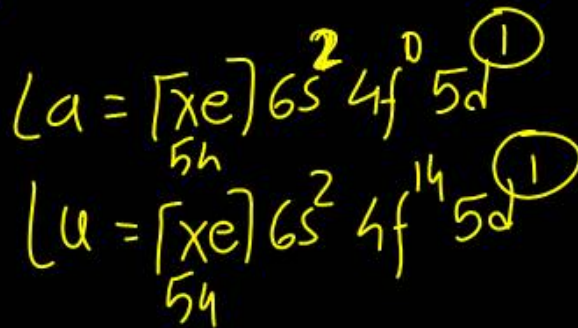 La = [xe] 6s² 4f⁰ 5d¹
54
Lu = [xe] 6s² 4f¹⁴ 5d¹
54